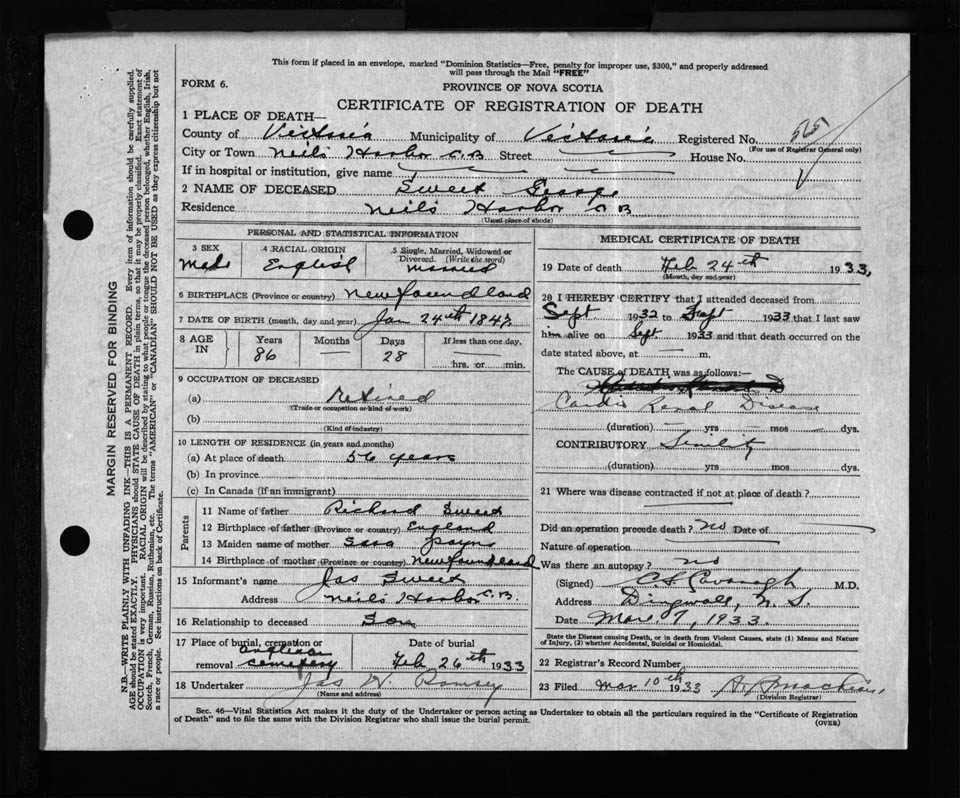 This form if placed in an envelope, marked "Dominion Statistics—Free, penalty for improper use, $300," and properly addressed
will pass through the Mail "FREE"
FORM 6.
PROVINCE OF NOVA SCOTIA
CERTIFICATE OF REGISTRATION OF DEATH
1 PLACE OF DEATH—
County of Victoria Municipality of Victoria Registered No. 565
(For use of Registrar General only)
City or Town Neils Harbor C.B Street — House No.
If in hospital or institution, give name —
2 NAME OF DECEASED Sweet George
Residence Neils Harbor C B
(Usual place of abode)
PERSONAL AND STATISTICAL INFORMATION
3 SEX 4 RACIAL ORIGIN 5 Single, Married, Widowed or Divorced. (Write the word)
Male English married
6 BIRTHPLACE (Province or country) Newfoundland
7 DATE OF BIRTH (month, day and year) Jan 24th 1847
8 AGE IN Years Months Days If less than one day,
86 — 28 hrs. or min.
9 OCCUPATION OF DECEASED
(a) retired
(Trade or occupation or kind of work)
(b)
(Kind of industry)
10 LENGTH OF RESIDENCE (in years and months)
(a) At place of death 56 years
(b) In province
(c) In Canada (if an immigrant)
Parents
11 Name of father Richard Sweet
12 Birthplace of father (Province or country) England
13 Maiden name of mother Sara Payne
14 Birthplace of mother (Province or country) Newfoundland
15 Informant's name Jas Sweet
Address Neils Harbor C.B.
16 Relationship to deceased Son
17 Place of burial, cremation or removal Anglican cemetery
Date of burial Feb 26th 1933
18 Undertaker Jas W.
(Name and address)
MEDICAL CERTIFICATE OF DEATH
19 Date of death Feb 24th 1933,
(Month, day and year)
20 I HEREBY CERTIFY that I attended deceased from
Sept 1932 to Sept 1933 that I last saw
him alive on Sept 1933 and that death occurred on the
date stated above, at — m.
The CAUSE of DEATH was as follows:—
Cardio Renal Disease
(duration) — yrs — mos — dys.
CONTRIBUTORY Senility
(duration) yrs mos dys.
21 Where was disease contracted if not at place of death?
Did an operation precede death? no Date of —
Nature of operation
Was there an autopsy? no
(Signed) C S Cavanagh M.D.
Address Dingwall, N.S.
Date Mar 7, 1933.
State the Disease causing Death, or in death from Violent Causes, state (1) Means and Nature
of Injury, (2) whether Accidental, Suicidal or Homicidal.
22 Registrar's Record Number
23 Filed Mar 10th 1933
(Division Registrar)
Sec. 46—Vital Statistics Act makes it the duty of the Undertaker or person acting as Undertaker to obtain all the particulars required in the "Certificate of Registration
of Death" and to file the same with the Division Registrar who shall issue the burial permit.
(OVER)
MARGIN RESERVED FOR BINDING
N.B.—WRITE PLAINLY WITH UNFADING INK—THIS IS A PERMANENT RECORD. Every item of information should be carefully supplied.
AGE should be stated EXACTLY. PHYSICIANS should STATE CAUSE OF DEATH in plain terms, so that it may be properly classified. Exact statement of
OCCUPATION is very important. RACIAL ORIGIN will be described by stating to what people or tongue the deceased person belonged, whether English, Irish,
Scotch, French, German, Russian, Ruthenian, etc. The terms "AMERICAN" or "CANADIAN" SHOULD NOT BE USED as they express citizenship but not
a race or people. See instructions on back of Certificate.